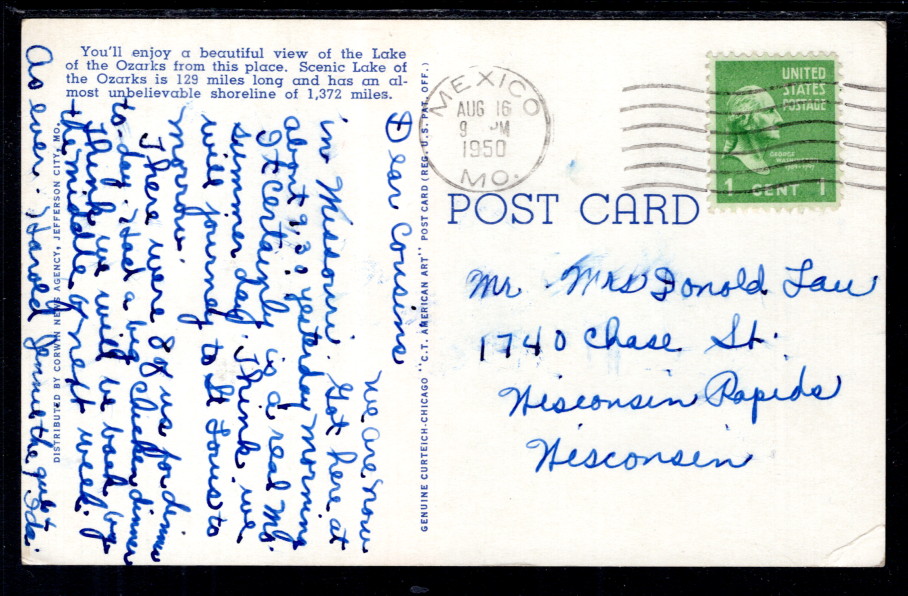 You'll enjoy a beautiful view of the Lake
of the Ozarks from this place. Scenic Lake of
the Ozarks is 129 miles long and has an al-
most unbelievable shoreline of 1,372 miles.
Dear Cousins
We are now
in Missouri. Got here at
about 9:30 yesterday morning
It Certainly is a real Mo.
summer day. Think we
will journey to St Louis to
morrow.
There were 8 of us for dinner
to-day. Had a big chicken dinner
Think we will be back by
the middle of next week.
As ever. Harold Jennie the
Ida.
DISTRIBUTED BY CORWIN NEWS AGENCY, JEFFERSON CITY, MO.
GENUINE CURTEICH-CHICAGO "C.T. AMERICAN ART" POST CARD (REG. U.S. PAT. OFF.)
MEXICO
AUG 16
9 PM
1950
MO.
UNITED
STATES
POSTAGE
GEORGE
1 CENT 1
POST CARD
Mr. Mrs Donald Lau
1740 Chase St.
Wisconsin Rapids
Wisconsin